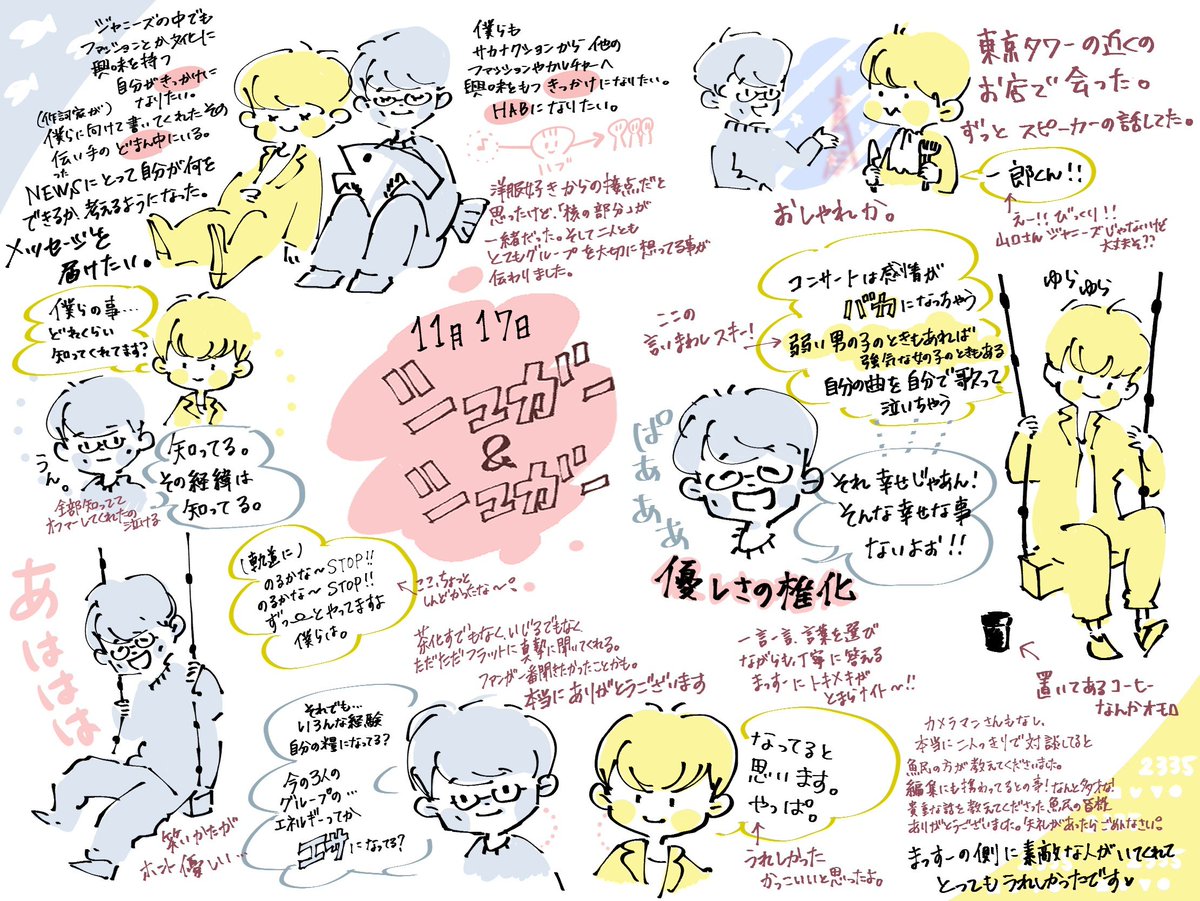 ジャニーズの中でも
ファッションとか文化に
興味を持つ
自分がきっかけに
なりたい。
(作詞家が)
僕らに向けて書いてくれたその
伝い手のどまん中にいる。
った
NEWSにとって自分が何を
できるか考えるようになった。
メッセージを
届けたい。
僕らも
サカナクションから他の
ファッションやカルチャーへ
興味をもつきっかけになりたい。
HABになりたい。
ハブ
洋服好きからの接点だと
思ったけど、「核の部分」が
一緒だった。そして二人とも
とてもグループを大切に想ってる事が
伝わりました。
東京タワーの近くの
お店で会った。
ずっとスピーカーの話してた。
一郎くん!!
おしゃれか。
えー!!びっくり!!
山口さんジャニーズじゃないけど
大丈夫??
僕らの事…
どれくらい
知ってくれてます?
うん。
知ってる。
その経緯は
知ってる。
全部知ってて
オファーしてくれたの
泣ける
11月17日
シュガー
&
シュガー
ここの
言いまわしスキー!
コンサートは感情が
バカになっちゃう
弱い男の子のときもあれば
強気な女の子のときもある
自分の曲を自分で歌って
泣いちゃう
ゆらゆら
ぱあああ
それ幸せじゃあん!
そんな幸せな事
ないよぉ!!
優しさの権化
あははは
(軌道に)
のるかな〜STOP!!
のるかな〜STOP!!
ずっーとやってますよ
僕らは。
ここ、ちょっと
しんどかったな〜。
茶化すでもなく、いじるでもなく
ただただフラットに真摯に聞いてくれる。
ファンが一番聞きたかったことかも。
本当にありがとうございます
一言一言、言葉を選び
ながらも、丁寧に答える
まっすーにトキメキが
とまらナイト〜!!
置いてあるコーヒー
なんかオモロ
笑いかたが
ホント優しい…
それでも…
いろんな経験
自分の糧になってる?
今の3人の
グループの…
エネルギーってか
コアになってる?
なってると
思います。
やっぱ。
うれしかった
かっこいいと思ったよ。
カメラマンさんもなし、
本当に二人っきりで対談してると
魚民の方が教えてくださいました。
編集にも携わってるとの事!なんと多才な!
貴重な話を教えてくださった魚民の皆様
ありがとうございました。失礼があったらごめんなさい。
まっすーの側に素敵な人がいてくれて
とってもうれしかったです♥
2335